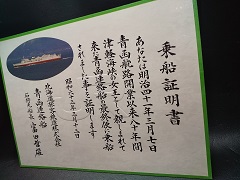 乗船証明書
あなたは明治四十一年三月七日
青函航路開業以来八十年間
津軽海峡の女王として親しまれて
来た青函連絡船の最終便に乗船
されました事を証明します
昭和六十三年三月十三日
北海道旅客鉄道株式会社
青函連絡船